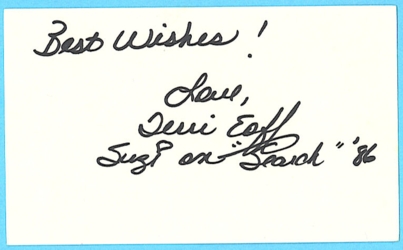 Best Wishes!
Love,
Terri Eoff
Suzi on "Search" '86